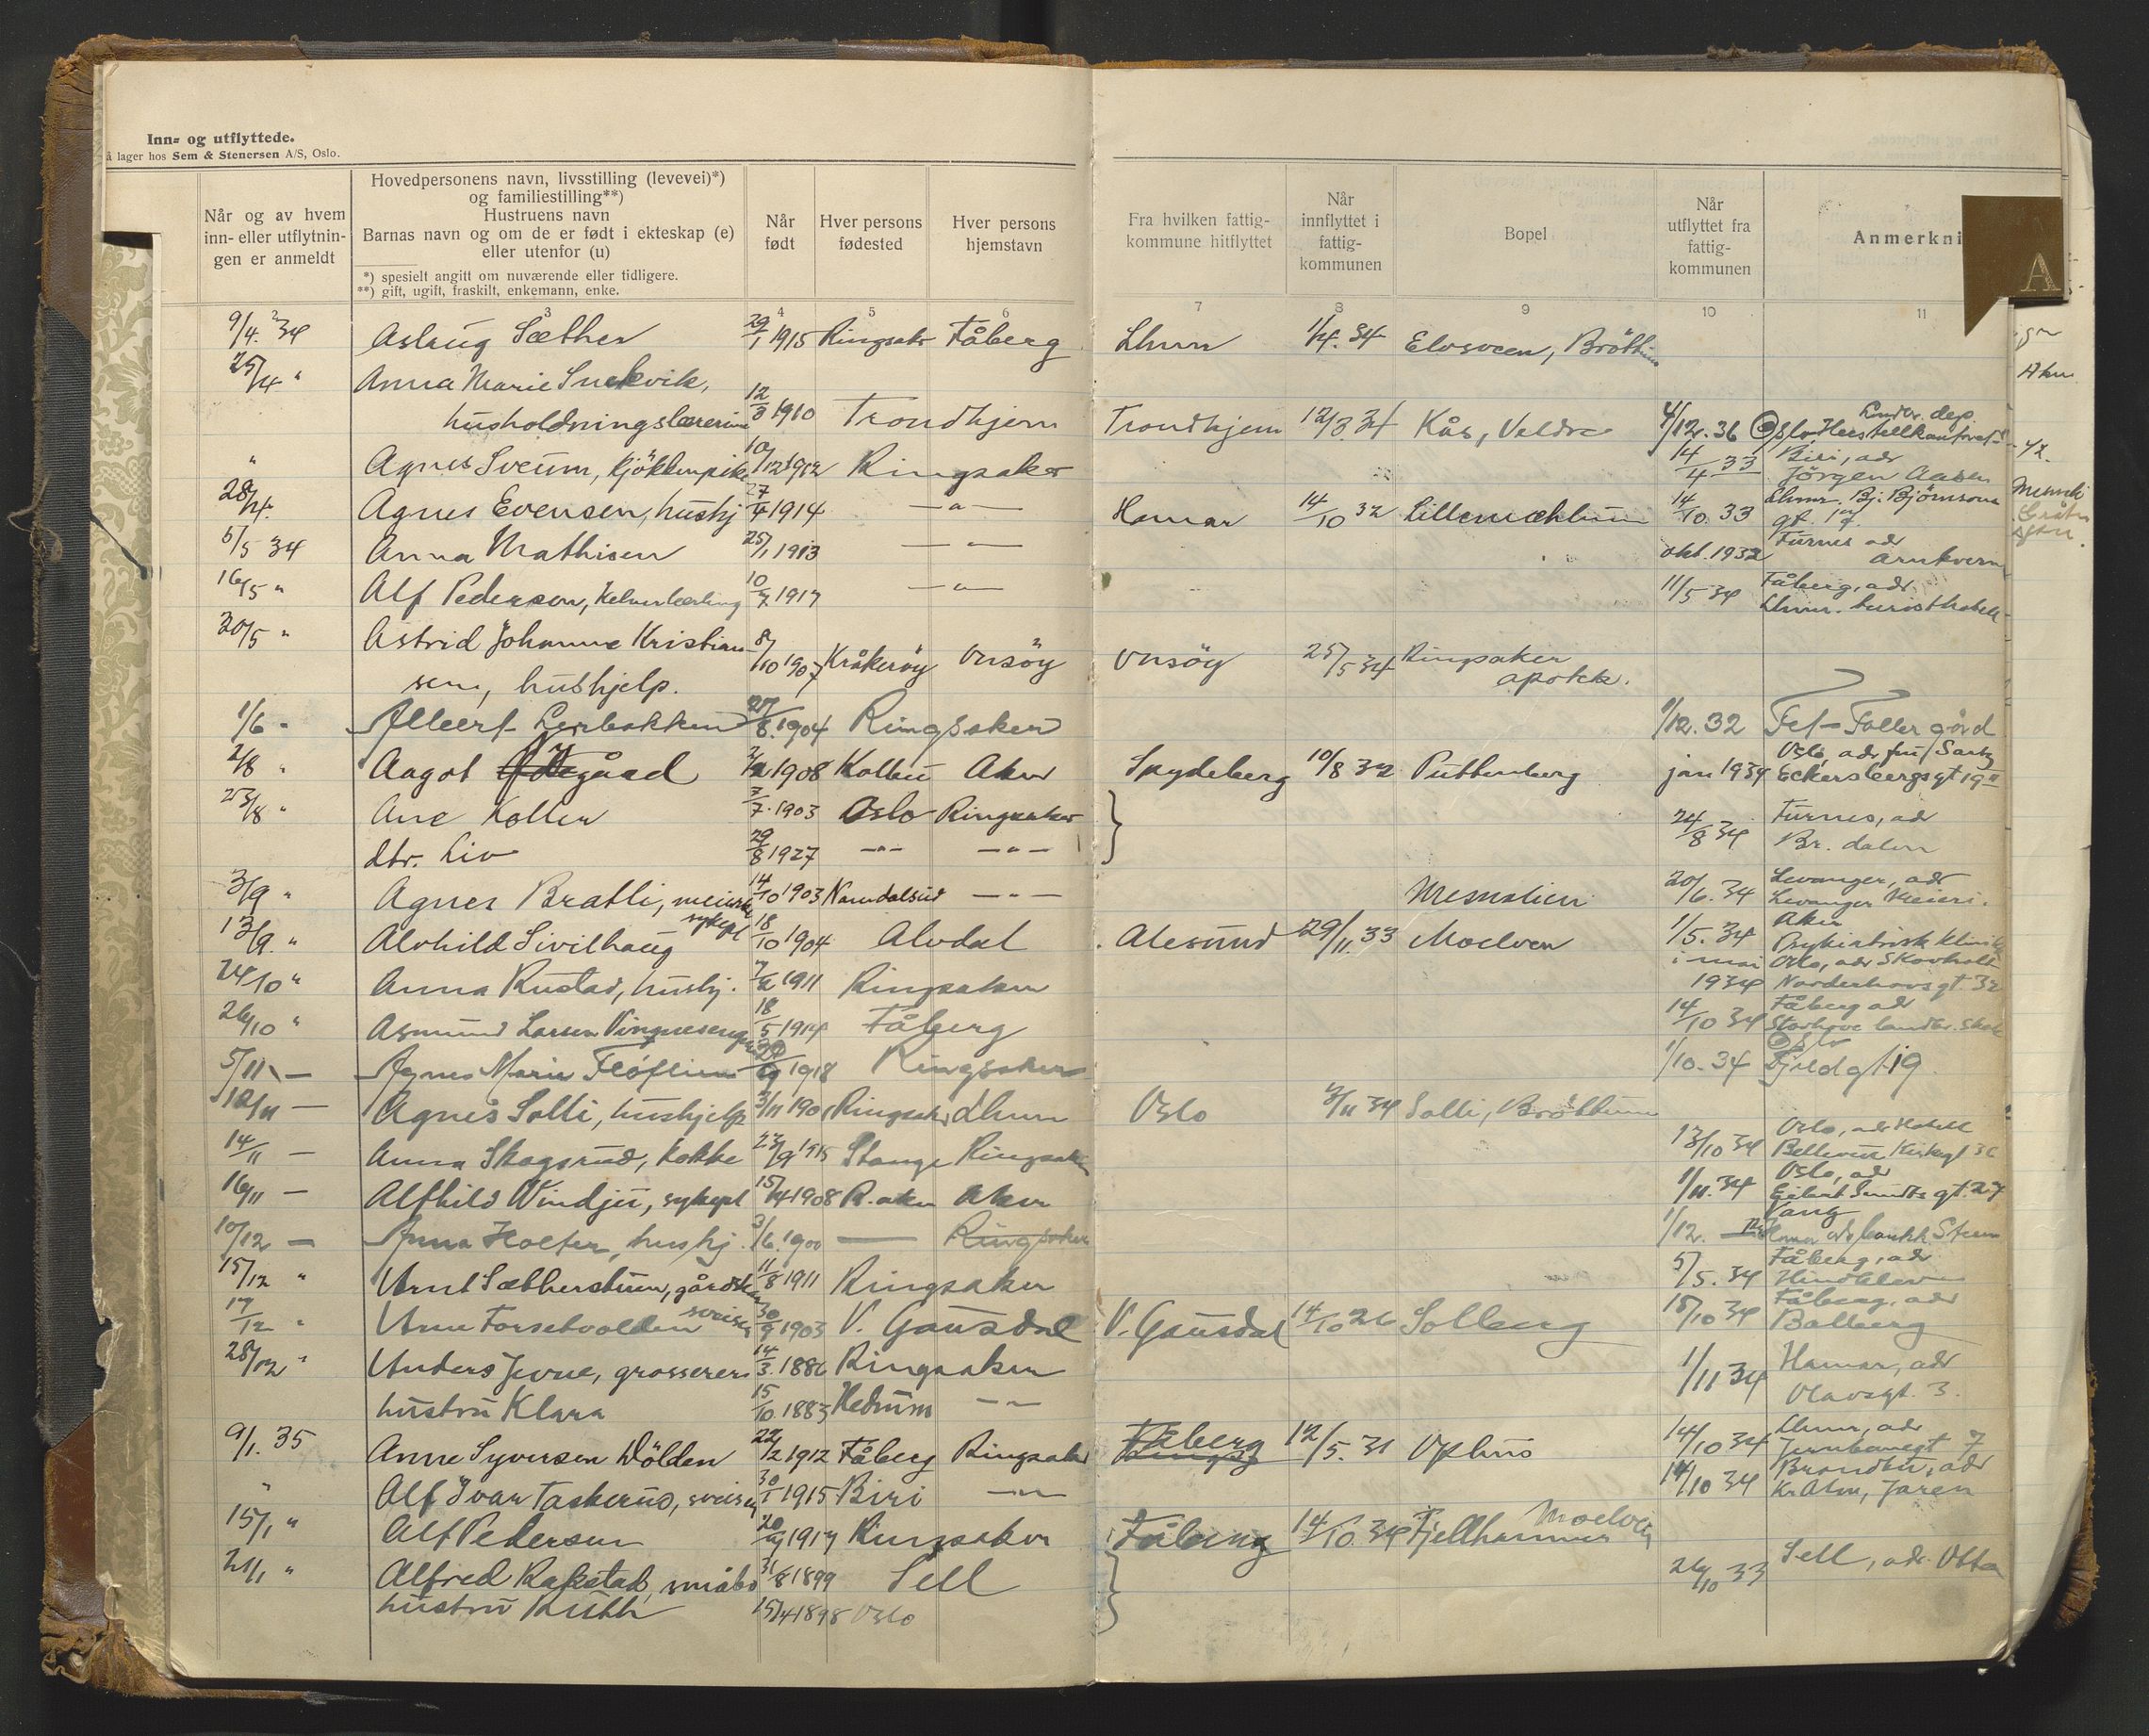 Inn- og utflyttede.
å lager hos Sem & Stenersen A/S, Oslo.
Når og av hvem inn- eller utflytnin- gen er anmeldt
Hovedpersonens navn, livsstilling (levevei)*) og familiestilling**) Hustruens navn Barnas navn og om de er født i ekteskap (e) eller utenfor (u)
*) spesielt angitt om nuværende eller tidligere.
**) gift, ugift, fraskilt, enkemann, enke.
Når født
Hver persons fødested
Hver persons hjemstavn
Fra hvilken fattig- kommune hitflyttet
Når innflyttet i fattig- kommunen
Bopel
Når utflyttet fra fattig- kommunen
Anmerkni
A
2 3 4 5 6 7 8 9 10 11
9/4. 34 Aslaug Sæther 29/1 1915 Ringsaker Fåberg Lhmr 1/4. 34 Elvsveen, Bröttum
25/4 " Anna Marie Snekvik,
husholdningslærerinne 12/3 1910 Trondhjem Trondhjem 12/3 34 Kås, Veldre 4/12. 36 Oslo
" Agnes Sveum, kjökkenpike 10/12 1912 Ringsaker 14/4 33 Biri, adr Jörgen Aasen
28/4. Agnes Evensen, hushj 27/4 1914 — " — Hamar 14/10 32 Lillemæhlum 14/10. 33 Lhmr. Bj. Björnsons gt.
5/5 34 Anna Mathisen 25/1 1913 — " — okt. 1932 Furnes adr Arnkvern
16/5 " Alf Pedersen, Kelnerlærling 10/7 1917 — " — 11/5 34 Fåberg, adr. Lhmr. turisthotell
30/5 " Astrid Johanne Kristian-
sen, hushjelp. 8/10 1907 Kråkeröy Onsöy Onsöy 25/5 34 Ringsaker apotek.
1/6 - Albert Lerbakken 27/8. 1904 Ringsaker 1/12. 32 Fet
2/8 " Aagot gaard 1908 Kolbu Aker Spydeberg 10/8 32 Puttenberg jan 1934 Oslo, adr fru Eckersbergsgt 19 II
23/8 " Ane Koller 7. 1903 Oslo Ringsaker } 24/8 34 Furnes, adr
dtr. Liv 29/8 1927 — " — — " — Br. dalen
3/9 " Agnes Bratli, meierske 14/10 1903 Namdalseid — " — Mesnalien 20/6. 34 Levanger, adr Levanger Meieri.
13/9. " Alvhild Sivilhaug sykepl 18/10 1904 Alvdal Alesund 29/11. 33 Moelven 1/5. 34 Aker Psykiatrisk klinikk
24/10 " Anna Rustad, hushj. 1911 Ringsaker i mai 1934 Oslo, adr Skovholt Norderhovsgt. 32
26/10 " Asmund Larsen 18/5 1914 Fåberg 14/10 34 Fåberg adr Storhove landbr. skole
5/11 — Agnes Marie 1918 Ringsaker 1/10. 34 Oslo Fjeldgt 19.
10/11 — Agnes Solli, hushjelp 3/11 1901 Ringsaker Lhmr Oslo 3/11 34 Solli, Bröttum
14/11 — Anna Skogsrud, kokke 23/9 1915 Stange Ringsaker 13/10 34 Oslo, adr Hotell Bellevue
16/11 — Alfhild Windju, sykepl 15/4 1908 R.aker Aker 1/11. 34 Oslo, adr Eilert Sundts gt. 27
10/12 — Anna Holter, hushj. 3/6. 1900 — Ringsaker 1/12. — Vang
15/12 " Arnt Sætherstuen, 11/8 1911 Ringsaker 5/5. 34 Fåberg, adr
17/12 " Arne Forsetvolden sveiser 30/9 1903 V. Gausdal V. Gausdal 14/10 26 Solberg 15/10 34 Fåberg, adr Balberg
28/12 " Anders Jevne, grosserer 14/3. 1886 Ringsaker 1/11 34 Hamar, adr
hustru Klara 15/10. 1883 Hedrum — " — Olavsgt. 3.
9/1. 35 Anne Syversen Dölden 22/2 1912 Fåberg Ringsaker Fåberg 12/5. 31 Ophus 14/10 34 Lhmr, adr Jernbanegt 7
" Alf Ivar Taskerud, sveiser 30/1 1915 Biri — " — 14/10 34 Brandbu, adr Jaren
15/1 " Alf Pedersen 1917 Ringsaker Fåberg 14/10. 34 Fjellhammer Moelven
21/1 " Alfred Rakstad, småbr 31/8 1899 Sell } 26/10 33 Sell, adr. Otta
hustru Ruth 15/4 1898 Oslo